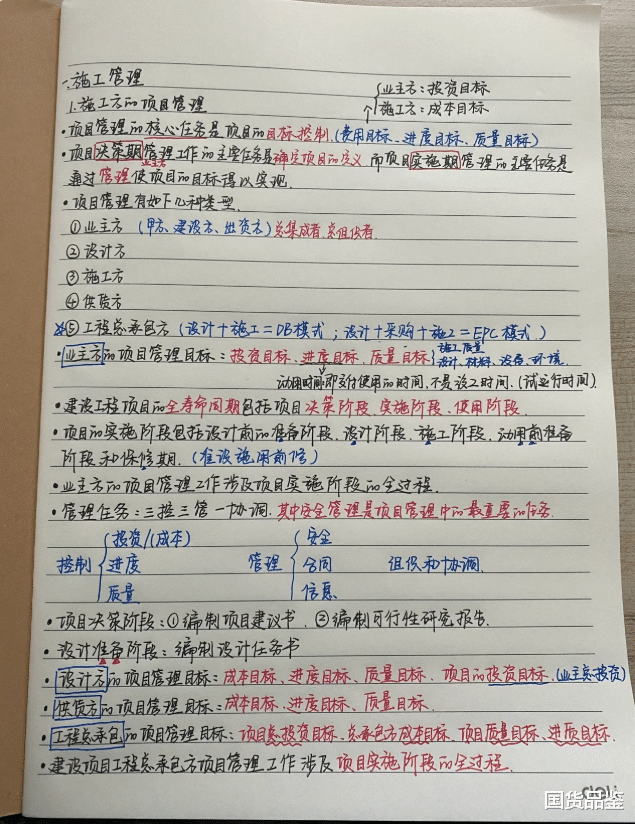 一.施工管理
1.施工方的项目管理
业主方：投资目标
施工方：成本目标
·项目管理的核心任务是项目的目标控制.(费用目标、进度目标、质量目标)
·项目决策期管理工作的主要任务是确定项目的定义 而项目实施期管理的主要任务是
通过管理使项目的目标得以实现.
·项目管理有如下几种类型.
①业主方 (甲方、建设方、出资方) 总集成者.总组织者.
②设计方
③施工方
④供货方
⑤工程总承包方 (设计+施工=DB模式；设计+采购+施工=EPC模式)
·业主方的项目管理目标：投资目标、进度目标、质量目标
施工质量
设计、材料、设备、环境.
动用时间即交付使用的时间.不是竣工时间.(试运行时间)
·建设工程项目的全寿命周期包括项目决策阶段、实施阶段、使用阶段.
·项目的实施阶段包括设计前的准备阶段、设计阶段、施工阶段、动用前准备
阶段和保修期.(准设施用前修)
·业主方的项目管理工作涉及项目实施阶段的全过程.
·管理任务：三控三管一协调.其中安全管理是项目管理中的最重要的任务.
控制 投资/(成本) 进度 质量
管理 安全 合同 信息
组织和协调.
·项目决策阶段：①编制项目建议书.②编制可行性研究报告.
·设计准备阶段：编制设计任务书
·设计方的项目管理目标：成本目标、进度目标、质量目标、项目的投资目标.(业主实投资)
·供货方的项目管理目标：成本目标、进度目标、质量目标.
·工程总承包的项目管理目标：项目总投资目标、总承包方成本目标、项目质量目标、进度目标.
·建设项目工程总承包方项目管理工作涉及项目实施阶段的全过程.
deli
国货品鉴